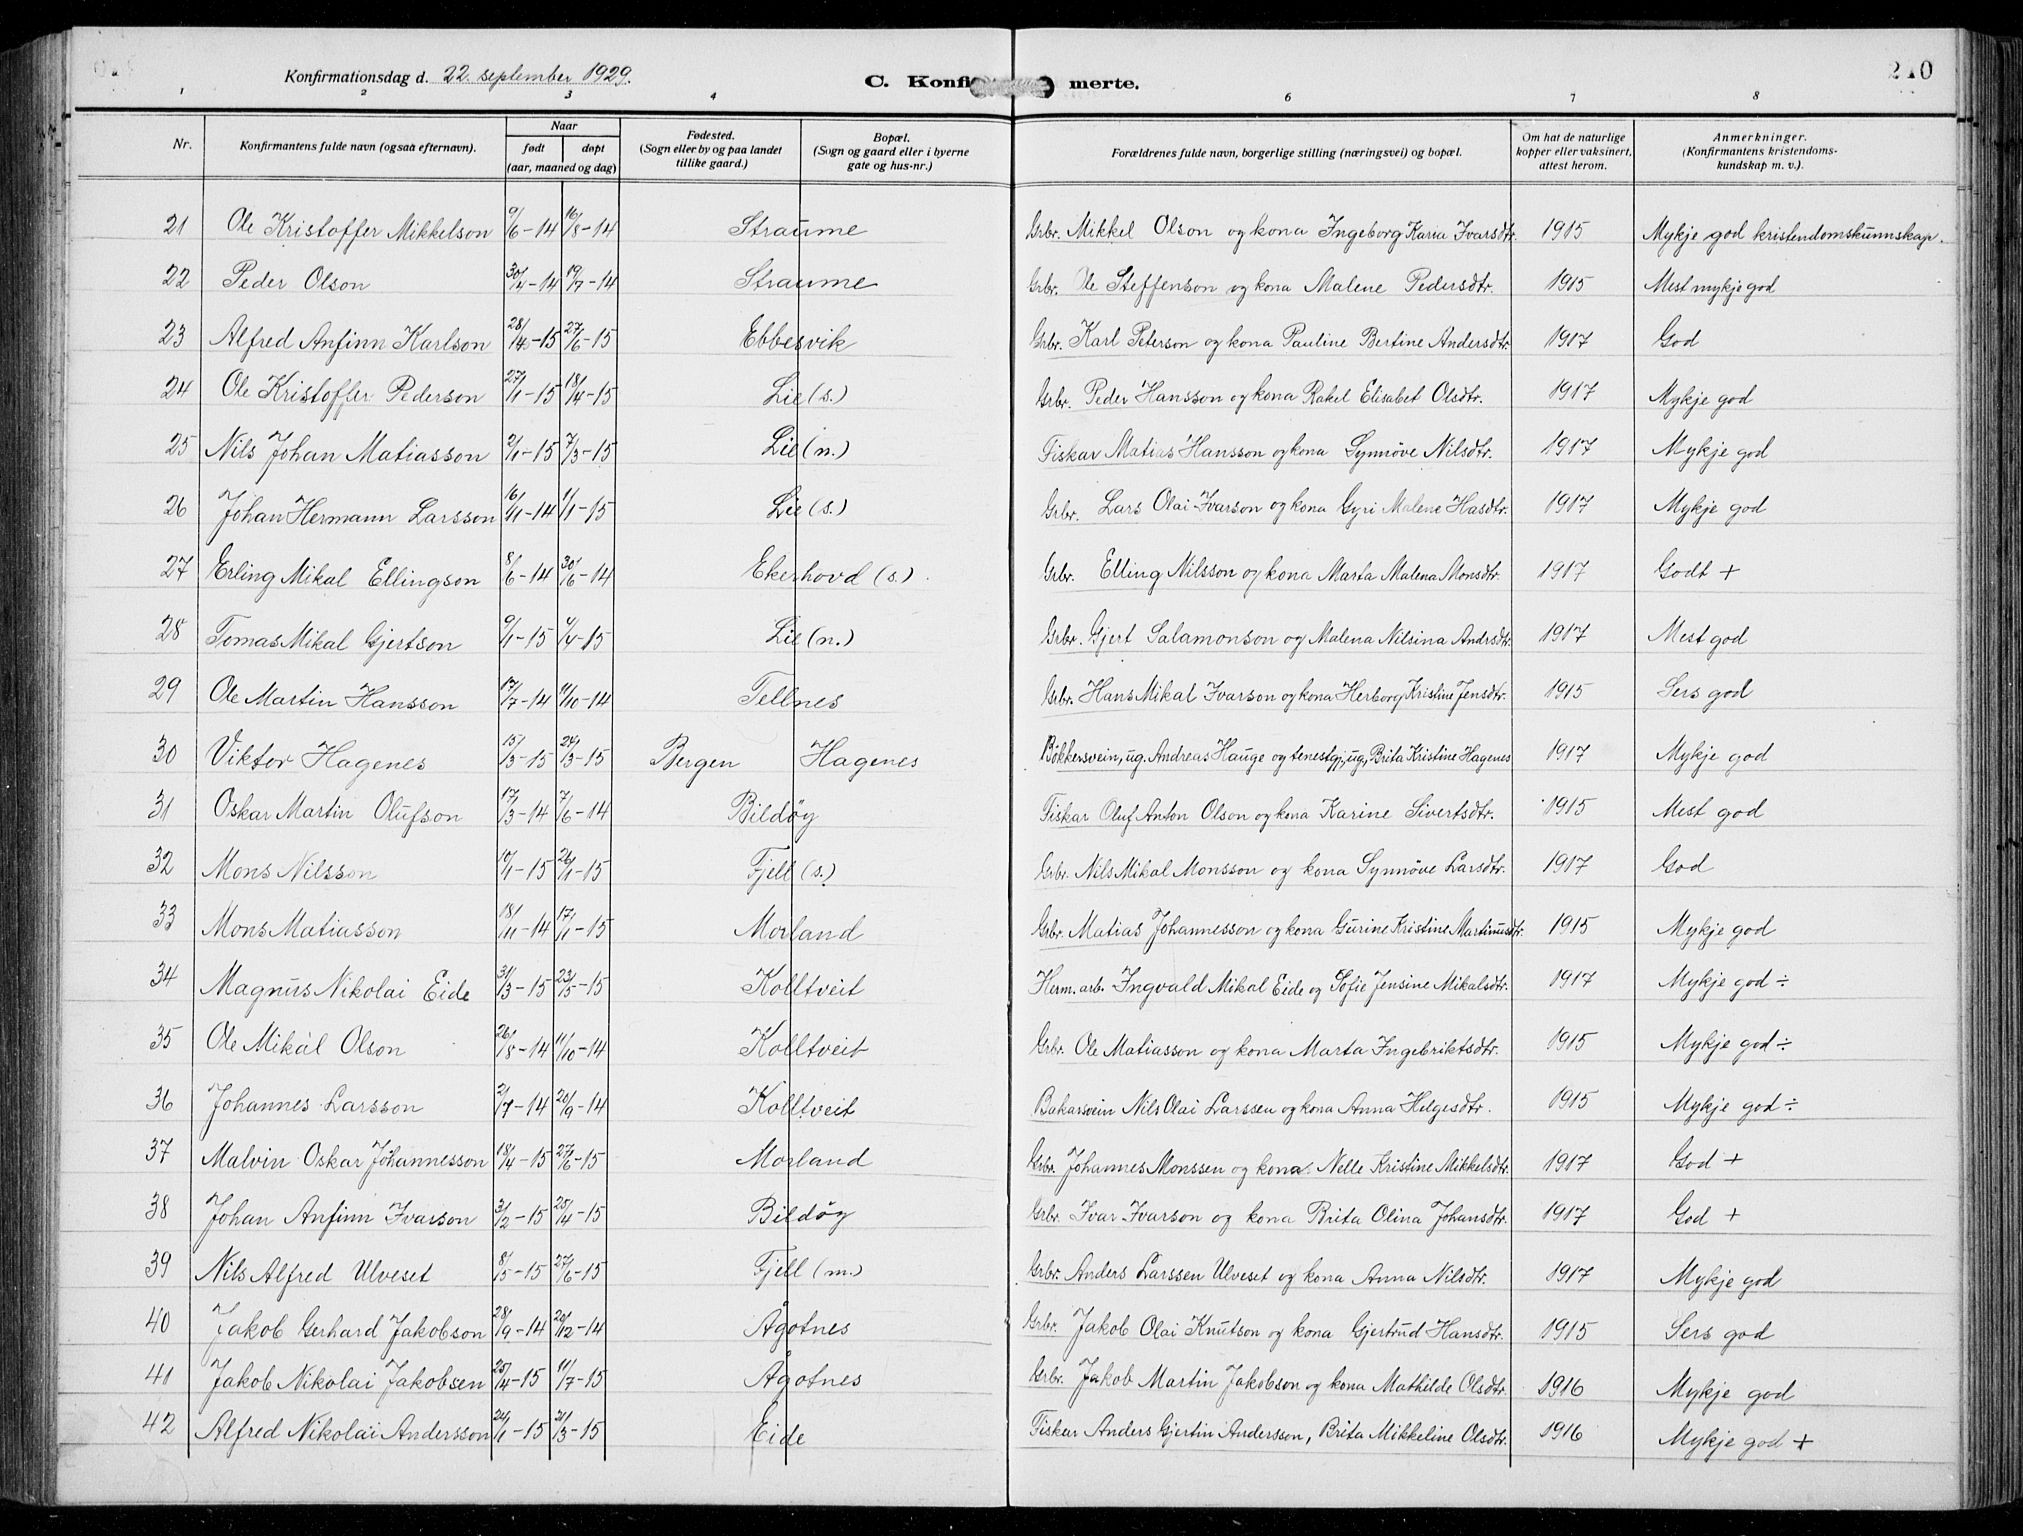 Konfirmationsdag d. 22. september 1929.
C. Konfi merte.
210
1 2 3 4 6 7 8
Nr. Konfirmantens fulde navn (ogsaa efternavn). Naar født døpt (aar, maaned og dag) Fødested. (Sogn eller by og paa landet tillike gaard.) Bopæl. (Sogn og gaard eller i byerne gate og hus-nr.) Forældrenes fulde navn, borgerlige stilling (næringsvei) og bopæl. Om hat de naturlige kopper eller vaksinert, attest herom. Anmerkninger. (Konfirmantens kristendoms-kundskap m. v.).
21 Ole Kristoffer Mikkelson 9/6-14 16/8-14 Straume Grbr. Mikkel Olson og kona Ingeborg Karia Ivarsdtr. 1915 Mykje god kristendomskunnskap.
22 Peder Olson 30/4-14 19/7-14 Straume Grbr. Ole Steffenson og kona Malene Pedersdtr. 1915 Mest mykje god
23 Alfred Anfinn Karlson 28/4-15 27/6-15 Ebbesvik Grbr. Karl Peterson og kona Pauline Bertine Andersdtr. 1917 God
24 Ole Kristoffer Pederson 27/1-15 18/4-15 Lie (s.) Grbr. Peder Hansson og kona Rakel Elisabet Olsdtr. 1917 Mykje god
25 Nils Johan Matiasson 2/1-15 7/3-15 Lie (n.) Fiskar Matias Hansson og kona Synnöve Nilsdtr. 1917 Mykje god
26 Johan Hermann Larsson 16/11-14 1/1-15 Lie (s.) Grbr. Lars Olai Ivarson og kona Gyri Malene Hasdtr. 1917 Mykje god
27 Erling Mikal Ellingson 8/6-14 30/6-14 Ekerhovd (s.) Grbr. Elling Nilsson og kona Marta Malena Monsdtr. 1917 Godt +
28 Tomas Mikal Gjertson 9/1-15 4/4-15 Lie (n.) Grbr. Gjert Salamonson og Malena Nilsina Andrsdtr. 1917 Mest god
29 Ole Martin Hansson 17/7-14 11/10-14 Tellnes Grbr. Hans Mikal Ivarson og kona Herborg Kristine Jensdtr. 1915 Sers god
30 Viktor Hagenes 15/3-15 24/3-15 Bergen Hagenes Bökkersvein, ug. Andreas Hauge og tenestgj, ug, Brita Kristine Hagenes 1917 Mykje god
31 Oskar Martin Olufson 17/3-14 7/6-14 Bildöy Fiskar Oluf Anton Olson og kona Karine Sivertsdtr. 1915 Mest god
32 Mons Nilsson 10/1-15 26/1-15 Fjell (s.) Grbr. Nils Mikal Monsson og kona Synnöve Larsdtr. 1917 God
33 Mons Matiasson 18/11-14 17/1-15 Morland Grbr. Matias Johannesson og kona Gurine Kristine Martinusdtr. 1915 Mykje god
34 Magnus Nikolai Eide 31/3-15 23/5-15 Kolltveit Herm. arb. Ingvald Mikal Eide og Sofie Jensine Mikalsdtr. 1917 Mykje god ÷
35 Ole Mikal Olson 26/8-14 11/10-14 Kolltveit Grbr. Ole Matiasson og kona Marta Ingebriktsdtr. 1915 Mykje god ÷
36 Johannes Larsson 2/7-14 20/9-14 Kolltveit Bakarsvein Nils Olai Larssen og kona Anna Helgesdtr. 1915 Mykje god ÷
37 Malvin Oskar Johannesson 18/4-15 27/6-15 Morland Grbr. Johannes Monssen og kona Nelle Kristine Mikkelsdtr. 1917 God +
38 Johan Anfinn Ivarson 3/2-15 25/4-15 Bildöy Grbr. Ivar Ivarson og kona Brita Olina Johansdtr. 1917 God +
39 Nils Alfred Ulveset 8/5-15 27/6-15 Fjell (m.) Grbr. Anders Larssen Ulveset og kona Anna Nilsdtr. 1917 Mykje god
40 Jakob Gerhard Jakobson 28/9-14 20/12-14 Ågotnes Grbr. Jakob Olai Knutson og kona Gjertrud Hansdtr. 1915 Sers god
41 Jakob Nikolai Jakobsen 25/4-15 11/7-15 Ågotnes Grbr. Jakob Martin Jakobson og kona Mathilde Olsdtr. 1916 Mykje god
42 Alfred Nikolai Andersson 24/1-15 21/3-15 Eide Fiskar Anders Gjertin Andersson, Brita Mikkeline Olsdtr. 1916 Mykje god +